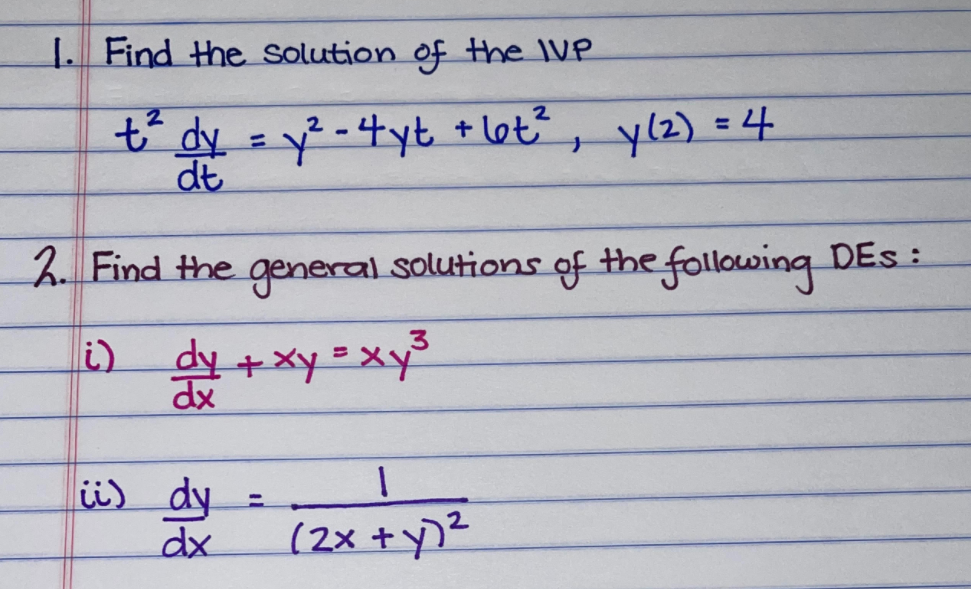 1. Find the solution of the IVP
t² dy/dt = y² - 4yt + 6t², y(2) = 4
2. Find the general solutions of the following DEs:
i) dy/dx + xy = xy³
ii) dy/dx = 1/(2x + y)²